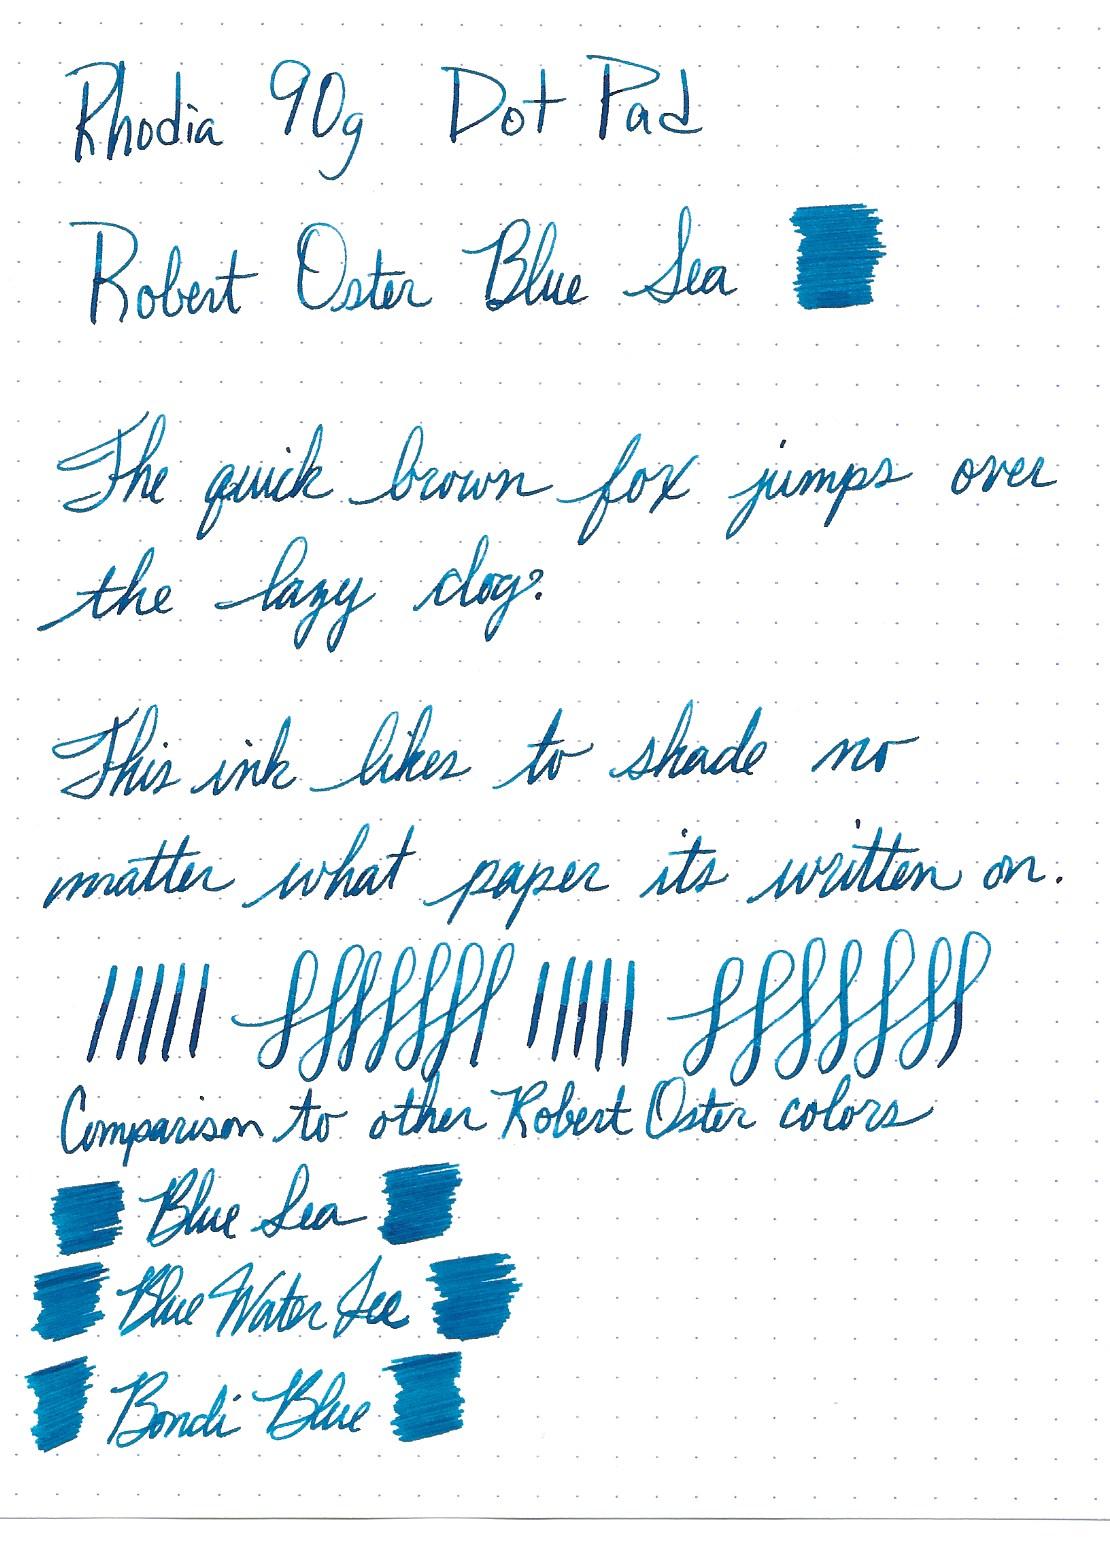 Rhodia 90g Dot Pad
Robert Oster Blue Sea
The quick brown fox jumps over
the lazy dog?
This ink likes to shade no
matter what paper its written on.
Comparison to other Robert Oster colors
Blue Sea
Blue Water Ice
Bondi Blue